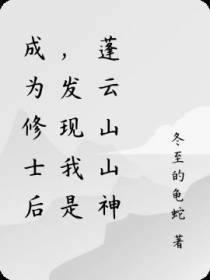 成为修士后
，发现我是
蓬云山山神
冬至的龟蛇 著